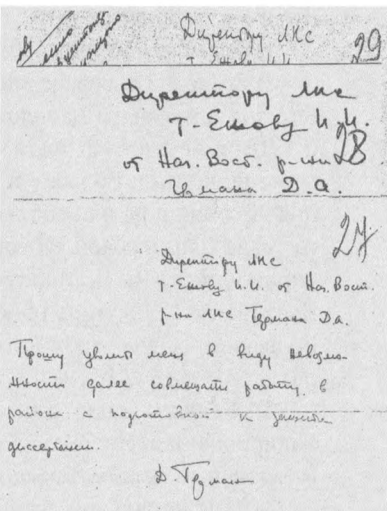 Директору ЛКС 29
т. Ежову И.И.
Директору ЛКС
т. Ежову И.И.
28
от Нач. Вост. р-на
Д.А.
27
Директору ЛКС
т. Ежову И.И. от Нач. Вост.
р-на ЛКС Д.А.
Прошу уволить меня в виду невозмо-
жности далее совмещать работу в
районе с подготовкой к защите
диссертации.
Д.